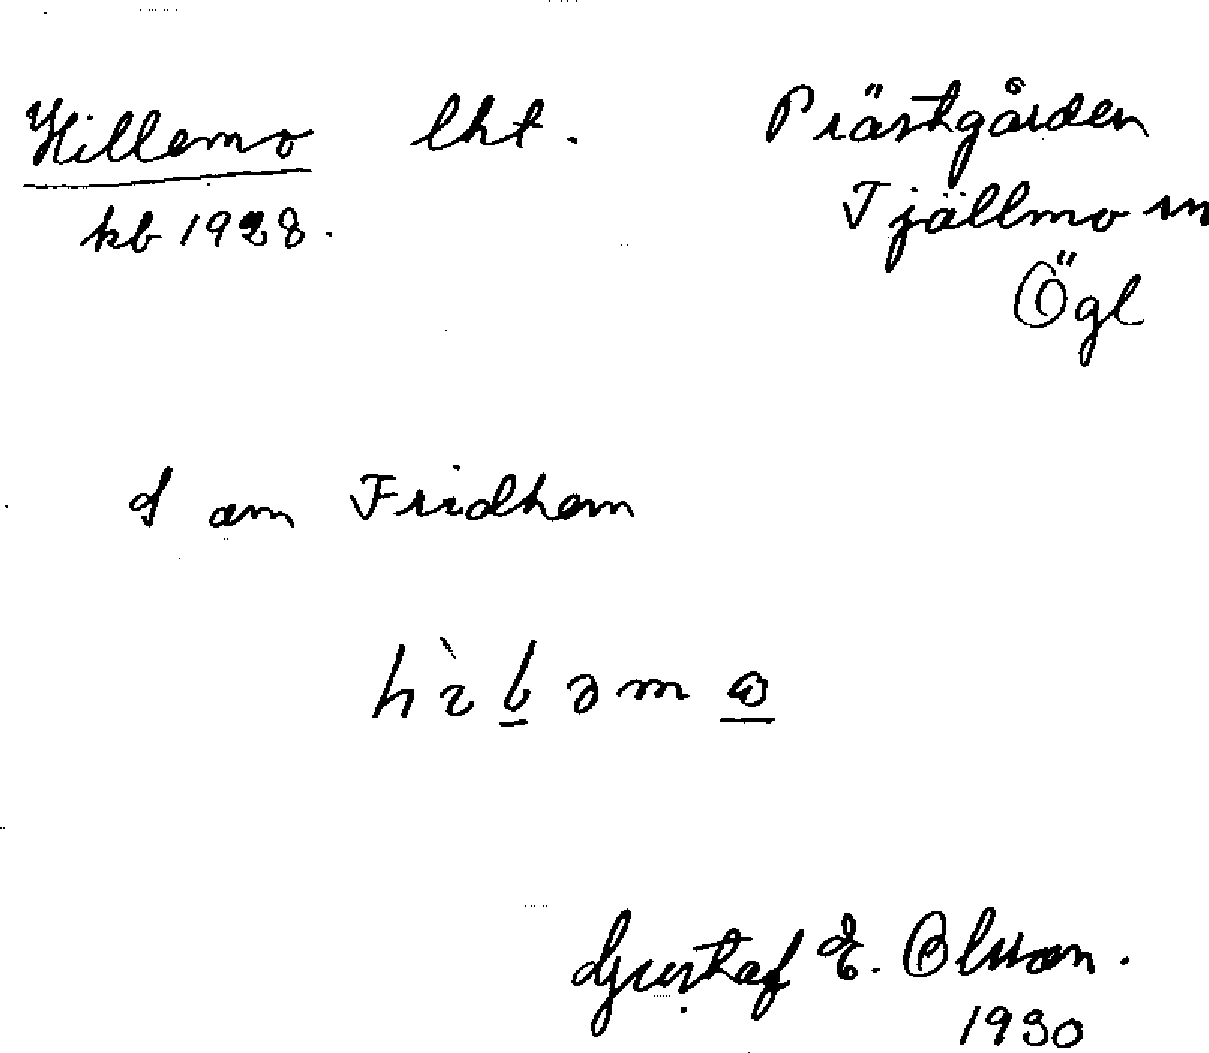 Hillemo lht. Prästgården
kb 1928. Tjällmo sn
Ögl
I am Fridhem
Gustaf E. Olsson.
1930